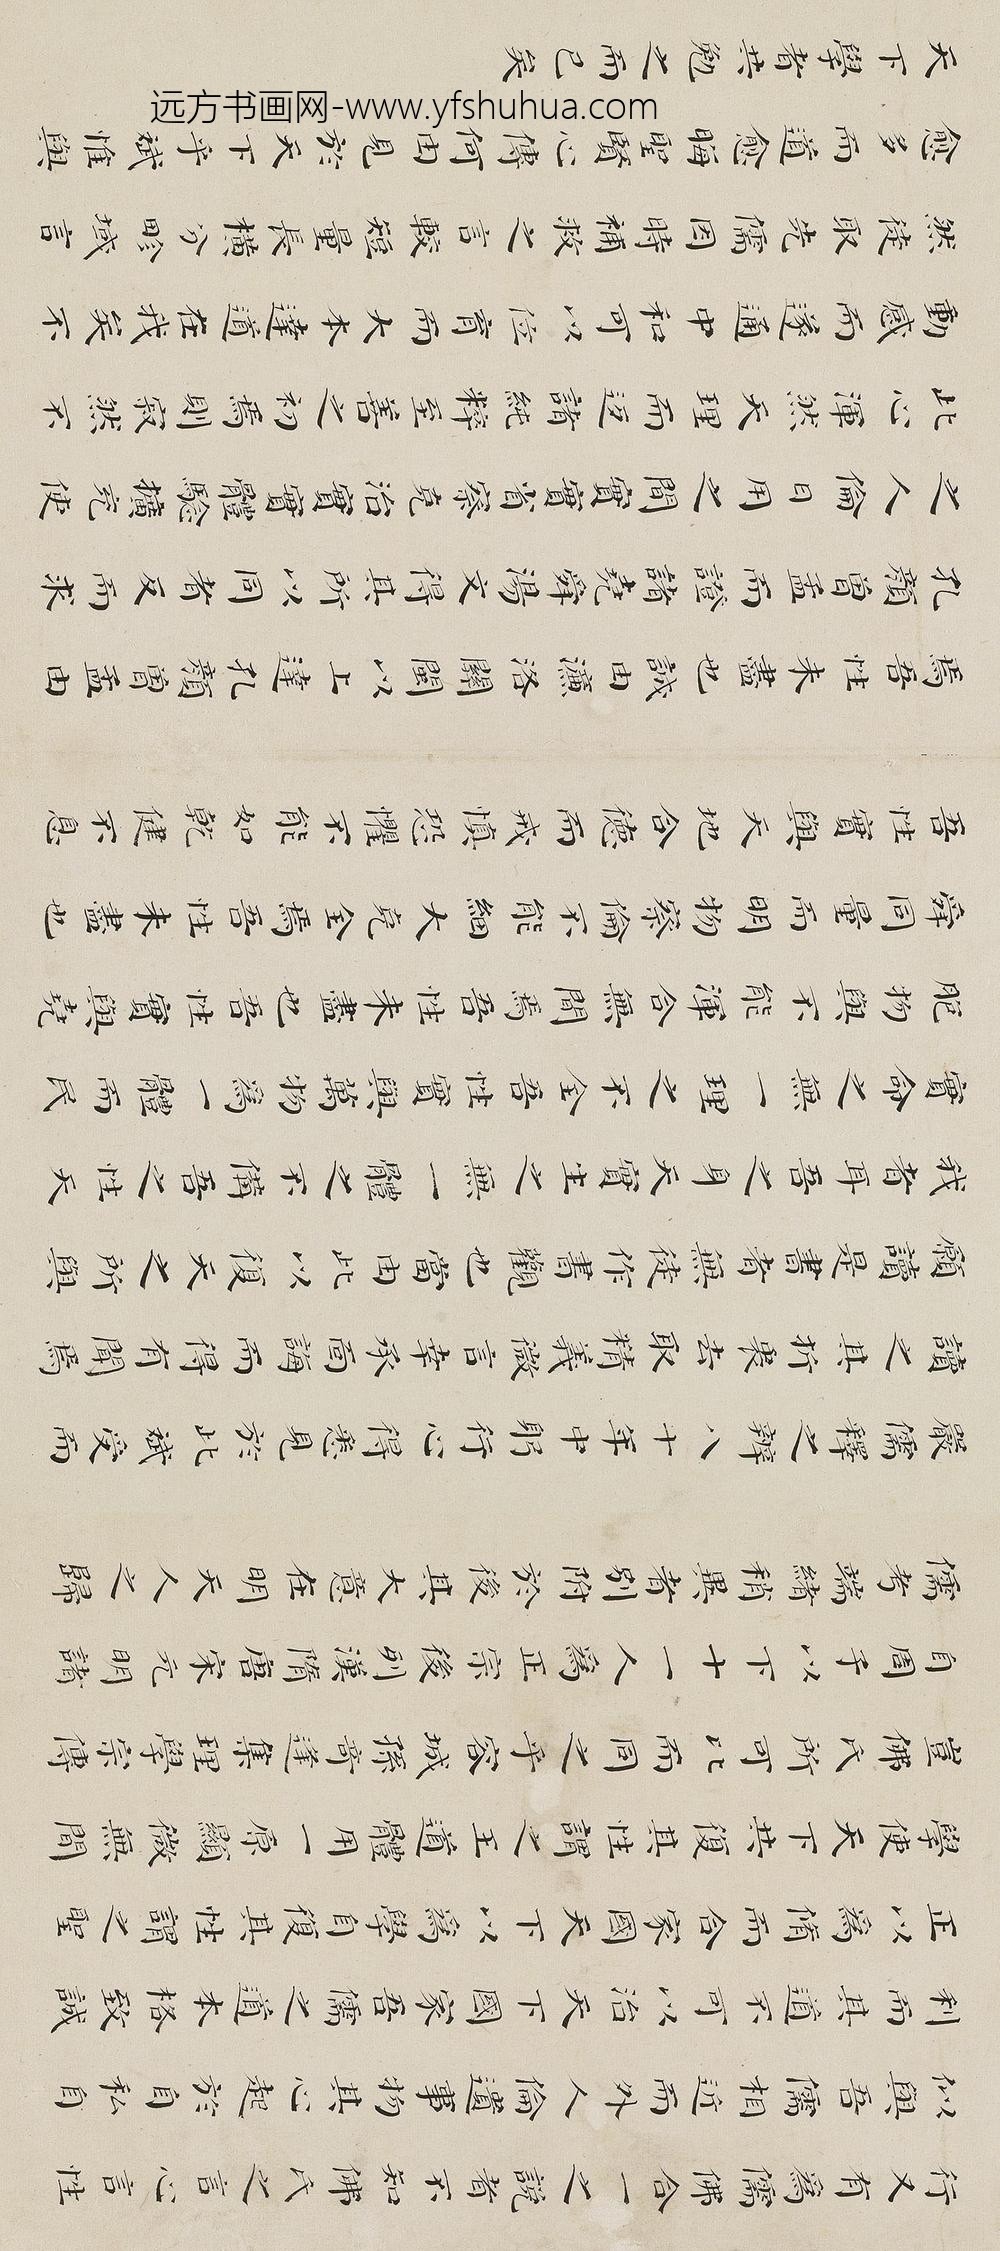 行又有爲儒佛合一之說者不知佛氏之言心言性
似與吾儒相近而外人倫遺事物其心起於自私自
利而其道不可以治天下國家吾儒之道本格致誠
正以爲脩而合家國天下以爲學自復其性謂之聖
學使天下共復其性謂之王道體用一原顯微無間
豈佛氏所可比而同之乎容城孫奇逢集理學宗傳
自周子以下十一人爲正宗後列漢隋唐宋元明諸
儒考端緒稍異者別附於後其大意在明天人之歸
嚴儒釋之辨八十年中躬行心得悉見於此斌受而
讀之其折衷去取精義微言幸承面誨而得有聞焉
願讀是書者無徒作書觀也當由此以復天之所與
我者耳吾之身天實生之無一體之不備吾之性天
實命之無一理之不全吾性實與萬物爲一體而民
胞物與不能渾合無間焉吾性未盡也吾性實與堯
舜同量而明物察倫不能細大克全焉吾性未盡也
吾性實與天地合德而戒慎恐懼不能如乾健不息
焉吾性未盡也誠由濂洛關閩以上達孔顏曾孟由
孔顏曾孟而證諸堯舜湯文得其所以同者反而求
之人倫日用之間實實省察克治實實體驗擴充使
此心渾然天理而返諸純粹至善之初焉則寂然不
動感而遂通中和可以位育而大本達道在我矣不
然徒取先儒因時補救之言較短量長橫分畛域言
愈多而道愈晦聖賢心傳何由見於天下乎斌惟與
天下學者共勉之而已矣
远方书画网-www.yfshuhua.com